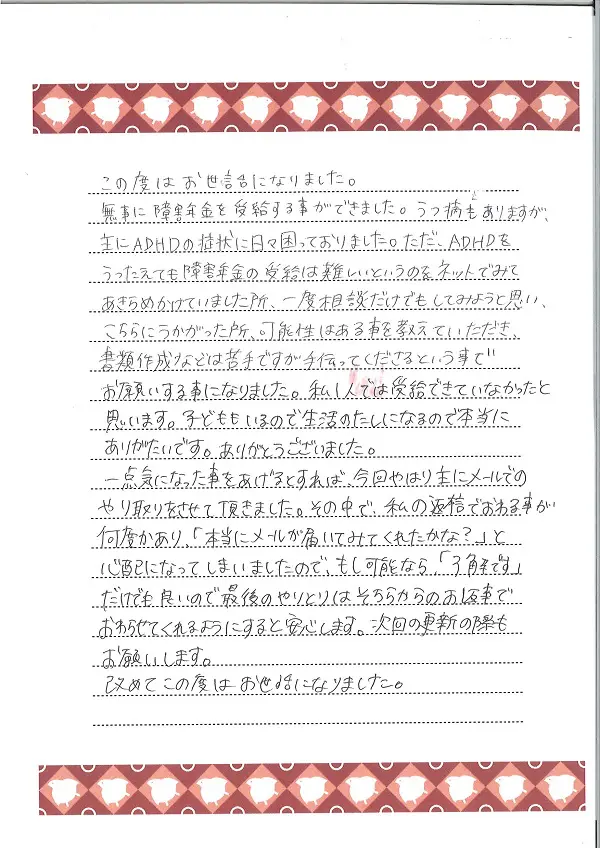 この度はお世話になりました。
無事に障害年金を受給する事ができました。うつ病もありますが、
主にADHDの症状に日々困っておりました。ただ、ADHDを
うったえても障害年金の受給は難しいというのをネットでみて
あきらめかけていました所、一度相談だけでもしてみようと思い、
こちらにうかがった所、可能性はある事を教えていただき、
書類作成などは苦手ですが手伝ってくださるという事で
お願いする事になりました。私1人では受給できていなかったと
思います。子どももいるので生活のたしになるので本当に
ありがたいです。ありがとうございました。
一点気になった事をあげるとすれば、今回やはり主にメールでの
やり取りをさせて頂きました。その中で、私の返信でおわる事が
何度かあり、「本当にメールが届いてみてくれたかな？」と
心配になってしまいましたので、もし可能なら、「了解です」
だけでも良いので最後のやりとりはそちらからのお返事で
おわらせてくれるようにすると安心します。次回の更新の際も
お願いします。
改めてこの度はお世話になりました。